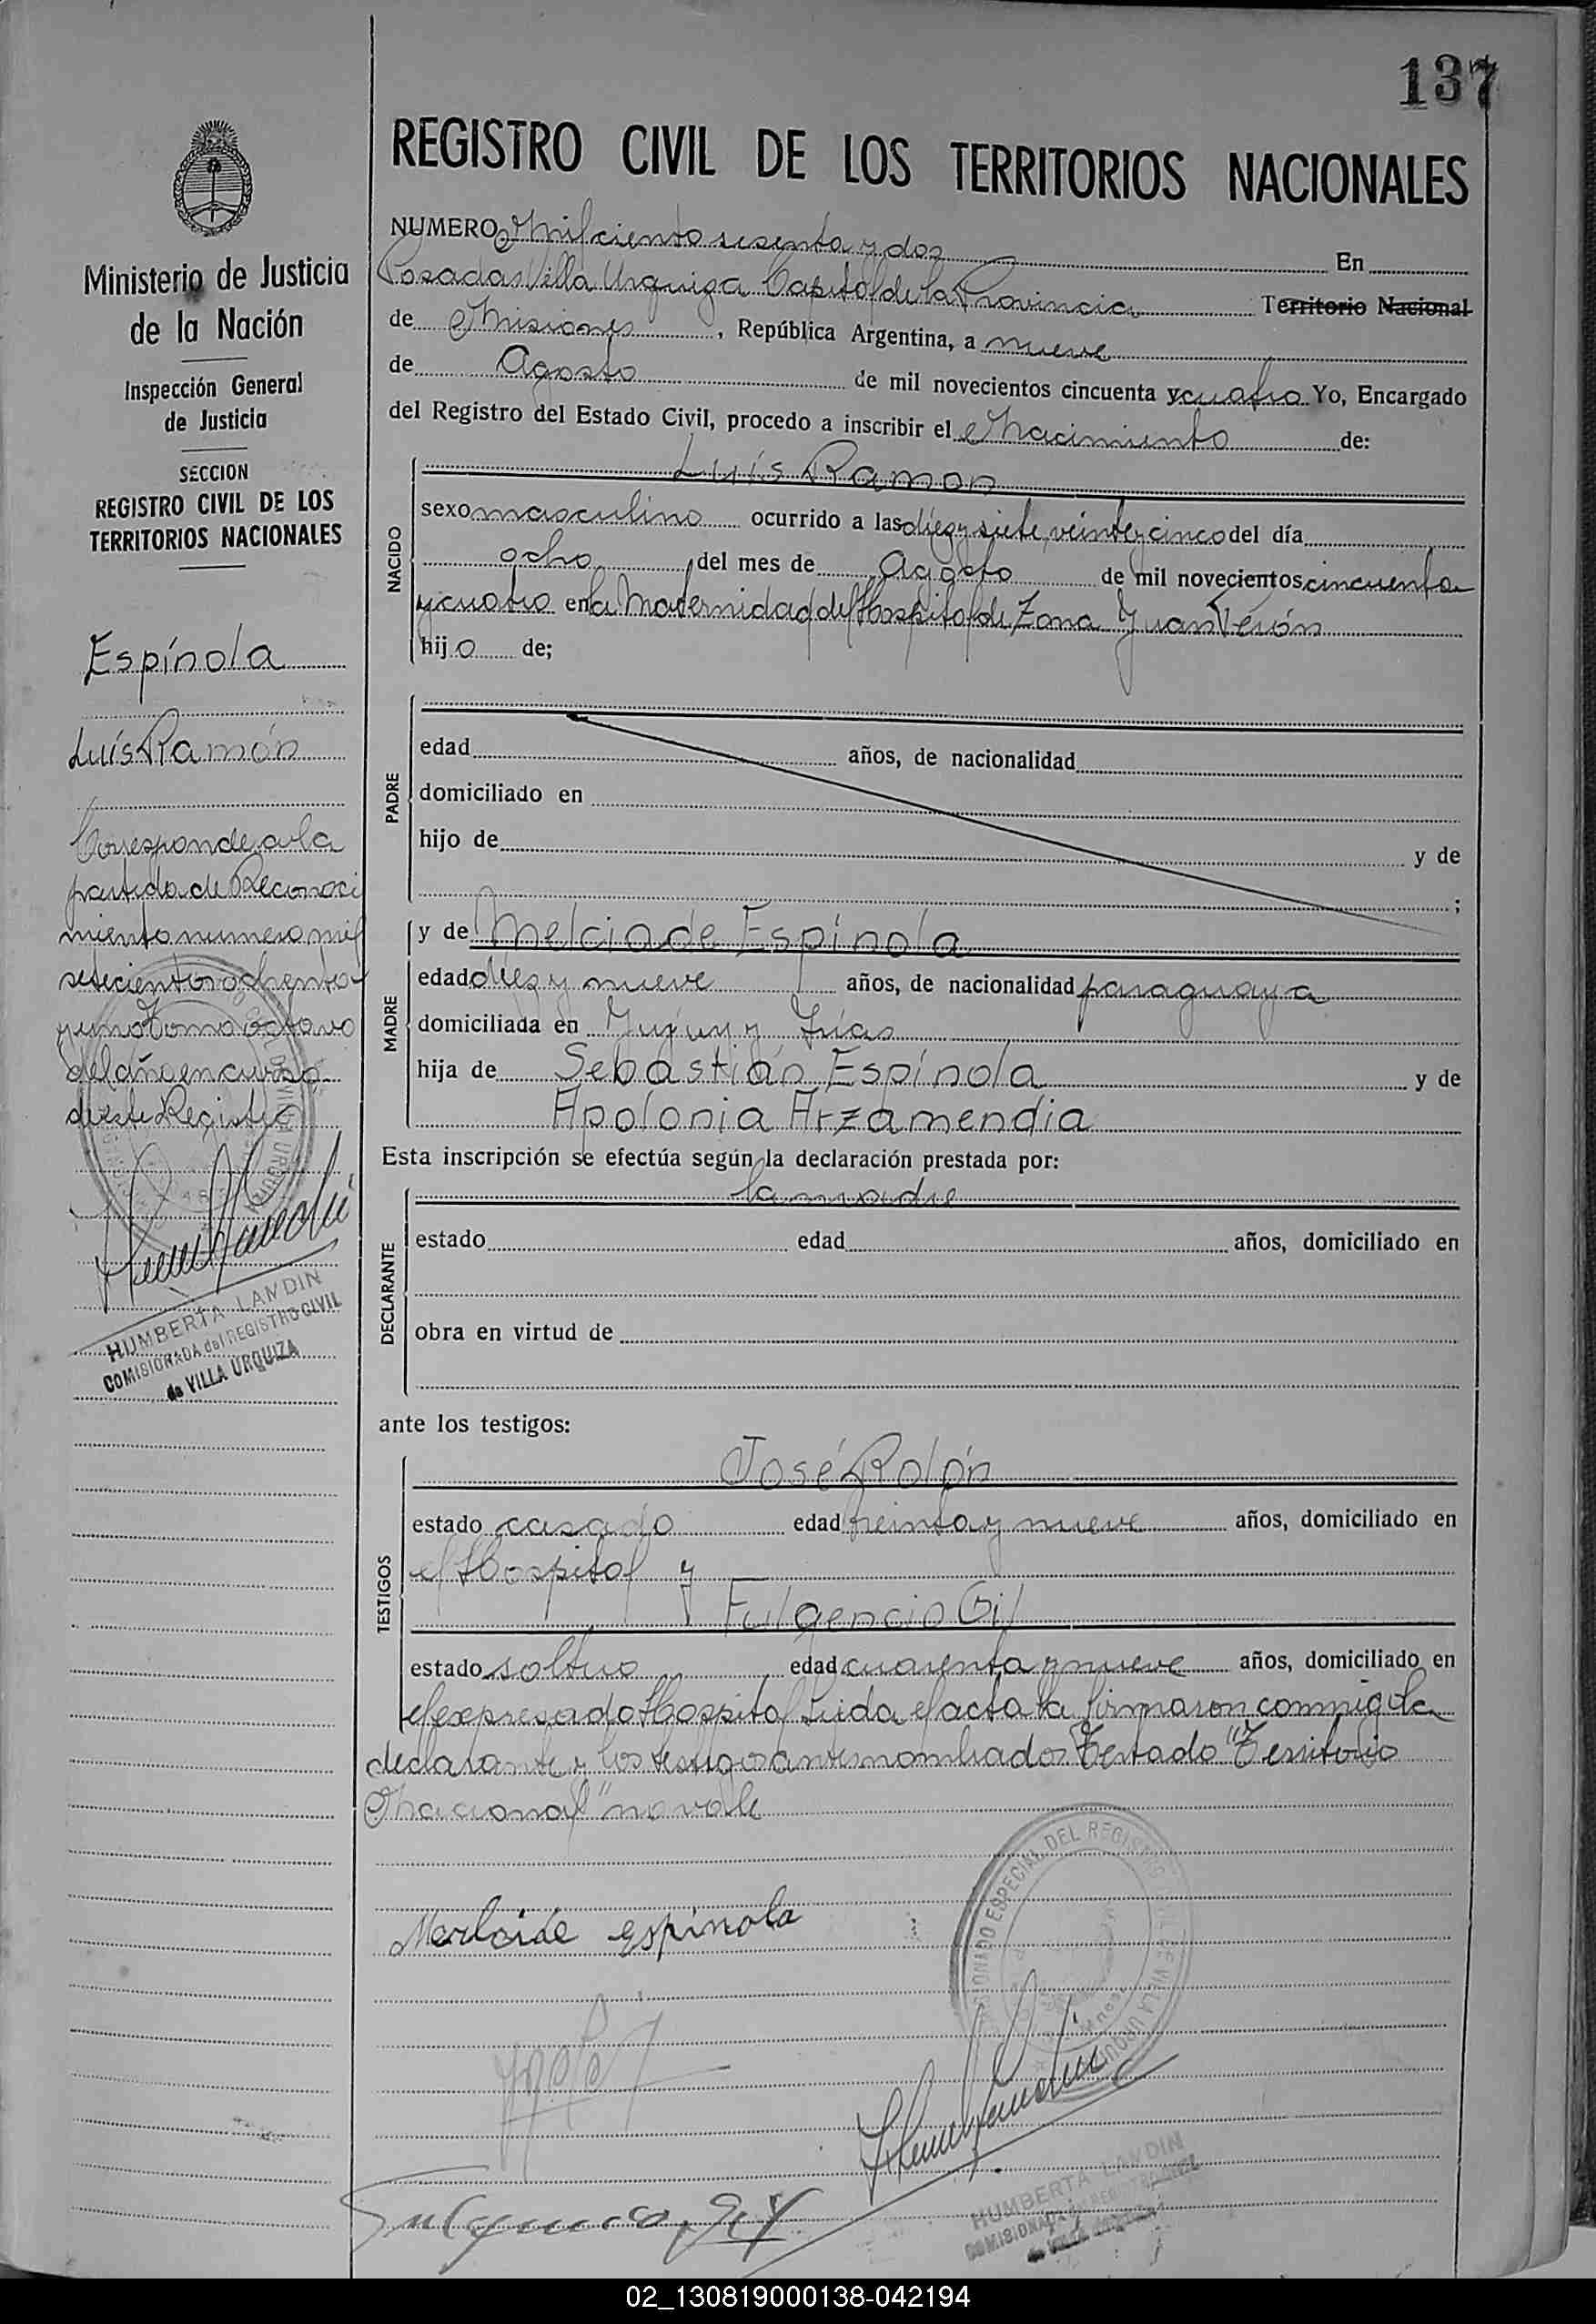 137
REGISTRO CIVIL DE LOS TERRITORIOS NACIONALES
NUMERO Mil ciento sesenta y dos En
Posadas Villa Urquiza Capital de la Provincia Territorio Nacional
de Misiones, República Argentina, a nueve
de Agosto de mil novecientos cincuenta y cuatro Yo, Encargado
del Registro del Estado Civil, procedo a inscribir el Nacimiento de:
NACIDO
Luis Ramon
sexo masculino ocurrido a las diez y siete, veinte y cinco del día
ocho del mes de Agosto de mil novecientos cincuenta
y cuatro en la Maternidad del Hospital de Zona Juan Perón
hijo de;
PADRE
edad años, de nacionalidad
domiciliado en
hijo de y de
;
MADRE
y de Melciade Espínola
edad diez y nueve años, de nacionalidad paraguaya
domiciliada en Jujuy y Frías
hija de Sebastián Espínola y de
Apolonia Arzamendia
Esta inscripción se efectúa según la declaración prestada por:
DECLARANTE
la madre
estado edad años, domiciliado en
obra en virtud de
ante los testigos:
TESTIGOS
José Rolón
estado casado edad treinta y nueve años, domiciliado en
el Hospital y
Fulgencio Gil
estado soltero edad cuarenta y nueve años, domiciliado en
el expresado Hospital Leida el acta la firmaron conmigo la
declarante y los testigos antes nombrados Testado "Territorio
Nacional" no vale
Melcide espinola
Fulgencio Gil
HUMBERTA LANDIN
COMISIONADA del REGISTRO CIVIL
de VILLA URQUIZA
Ministerio de Justicia
de la Nación
Inspección General
de Justicia
SECCION
REGISTRO CIVIL DE LOS
TERRITORIOS NACIONALES
Espínola
Luís Ramón
Corresponde a la
partida de Reconoci
miento numero mil
setecientos ochenta
y uno Tomo octavo
del año en curso
de este Registro
HUMBERTA LANDIN
COMISIONADA del REGISTRO CIVIL
de VILLA URQUIZA
02_130819000138-042194